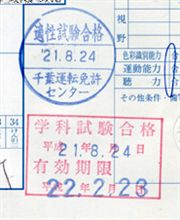 適性試験合格
'21.8.24
千葉運転免許
センター
視
野
色彩識別能力
運動能力
聴
その他条件・備
学科試験合格
平成 年 月 日
21.8.24
有効期限
平成 年 月 日
22.2.23
34
33